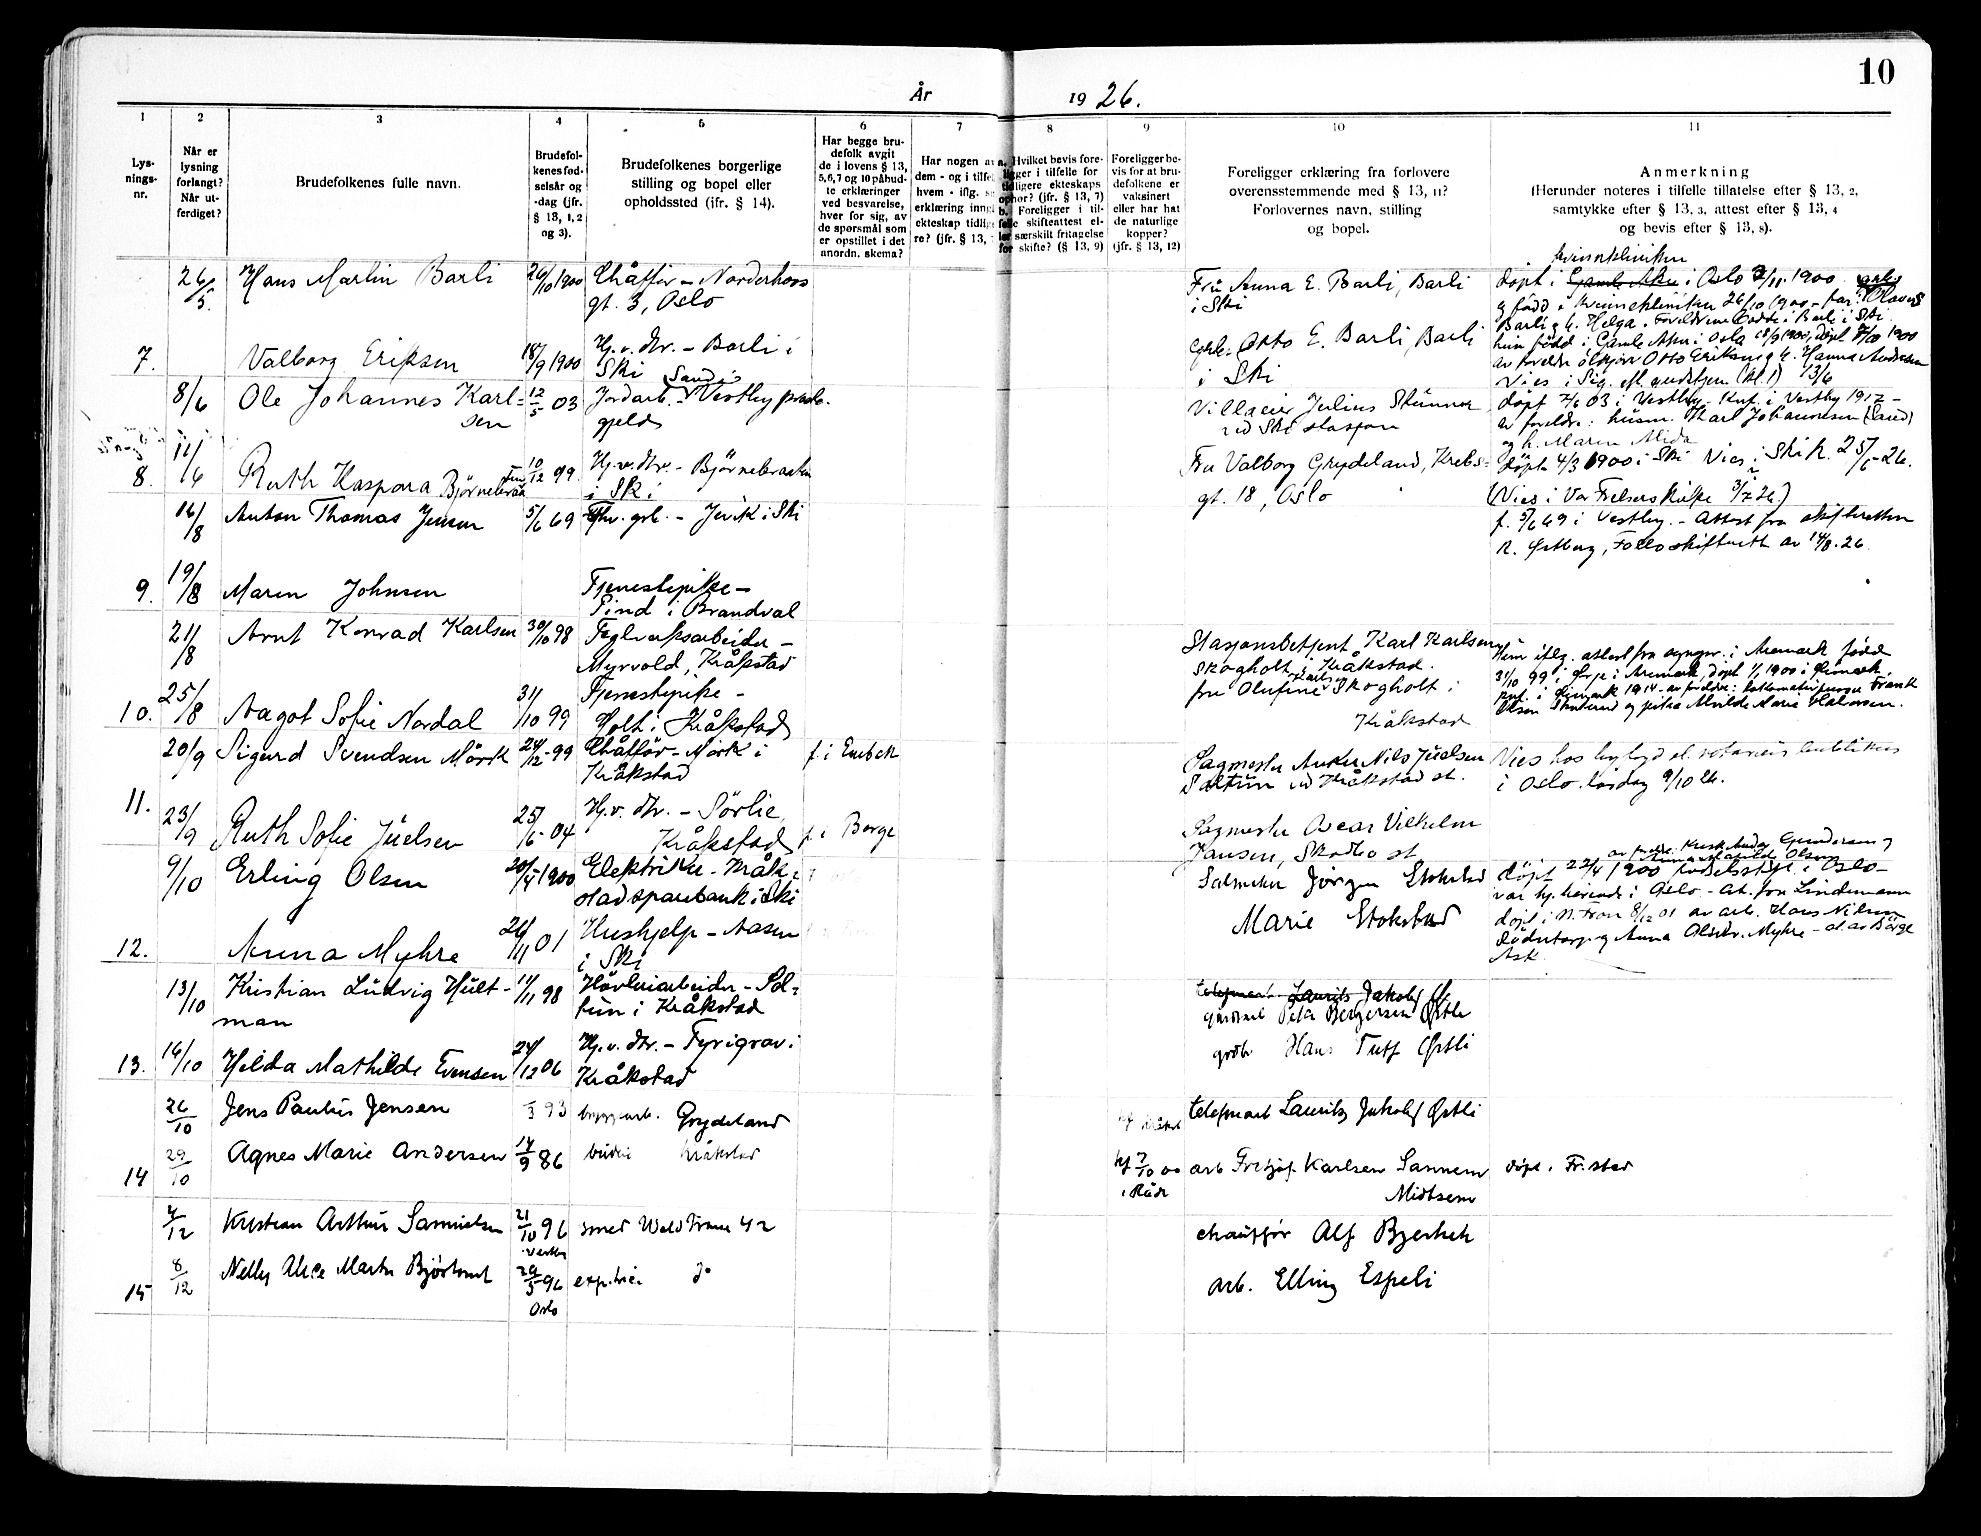 10
År 1926.
1
2
3
4
5
6
7
8
9
10
11
Lysningsnr.
Når er lysning forlangt? Når utferdiget?
Brudefolkenes fulle navn.
Brudefolkenes fødselsår og -dag (jfr. § 13, 1, 2 og 3).
Brudefolkenes borgerlige stilling og bopel eller opholdssted (jfr. § 14).
Har begge brudefolk avgit de i lovens § 13, 5, 6, 7 og 10 påbudte erklæringer ved besvarelse, hver for sig, av de spørsmål som er opstillet i det anordn. skema?
Har nogen av dem - og i tilfelle hvem - iflg. erklæring inngå ekteskap tidligere? (jfr. § 13,
Hvilket bevis foreligger i tilfelle for tidligere ekteskaps ophør? (jfr. § 13, 7) b. Foreligger i tilfelle skifteattest eller særskilt fritagelse for skifte? (§ 13, 9)
Foreligger bevis for at brudefolkene er vaksinert eller har hat de naturlige kopper? (jfr. § 13, 12)
Foreligger erklæring fra forlovere overensstemmende med § 13, 11? Forlovernes navn, stilling og bopel.
Anmerkning (Herunder noteres i tilfelle tillatelse efter § 13, 2, samtykke efter § 13, 3, attest efter § 13, 4 og bevis efter § 13, 8).
26/5. Hans Martin Barli 26/10 1900 Chåffør - Norderhovs
gt. 3, Oslo
Fru Anna E. Barli, Barli
i Ski
kvinneklinikken
døpt i Gamle Aker i Oslo 3/11 1900
født i kvinneklinikken 26/10 1900 - far: Olaves
Barli og h. Helga. Foreldrene bodde i Barli i Ski
7. Valborg Eriksen 18/9 1900 Hj.v. dtr. - Barli i
Ski
Otto E. Barli, Barli
i Ski
hun født i Gamle Aker i Oslo 18/9 1900, døpt
av foreldre Otto Eriksen og h. Hanna Andersen
Vies i Sig. eft. gudstjen (kl. 1) 13/6
8/6 Ole Johannes Karlsen 12/5 03 Jordarb. - Vestby prestegjeld
Villaeier Julius Skinner
ved Ski stasjon
døpt 7/6 03 i Vestby - Knf. i Vestby 1917 -
av foreldre: husm. Karl Johannesen (Sand)
og h. Maren
8. 11/6 Ruth Kaspara Bjørnebråten 10/12 99. Hj.v. dtr. - Bjørnebraaten
i Ski
Fru Valborg Grydeland, Krebs=
gt. 18, Oslo
Døpt 4/3 1900 i Ski Vies i Ski k. 25/ -26.
(Vies i Vor Frelsers kirke 3/7 26.)
16/8 Anton Thomas Jensen 5/6 69 - Jevik i Ski
f. 5/6 69 i Vestby. - Attest fra skifteretten
Østberg, Follo skifterett av 14/8. 26.
9. 19/8 Maren Johnsen Tjenestepike -
Sind i Brandval
21/8 Arnt Konrad Karlsen 30/10 98 Teglverksarbeider -
Myrvold, Kråkstad
Stasjonsbetjent Karl Karlsen
Skogholt i Kråkstad.
Hun iflg. attest fra sogner. i Aremark født
31/10 99 i Ørje i Aremark, døpt 1/1 1900 i
10. 25/8 Aagot Sofie Nordal 31/10 99 Tjenestepike -
Holt i Kråkstad
fru Olufine Skogholt i
Kråkstad
20/9 Sigurd Svendsen Mørk 24/12-99 Chåffør - Mørk i
Kråkstad
f. i Enebak
Sagmester Anker Nils Juelsen
Saltun ved Kråkstad st.
Vies hos byfogd el. notarius publikus
i Oslo lørdag 9/10 26.
11. 23/9 Ruth Sofie Juelsen 25/6-04 Hj.v. dtr. - Sørlie,
Kråkstad
f. i Borge
Sagmester Oscar Vilhelm
Jansen, Skotbo st.
9/10 Erling Olsen 20/4 1900 Elektriker - Kråk=
stad sparebank i Ski
Salmaker Jørgen Stokstad
Marie Stokstad
døpt 22/4 1900 fødselsstif. i Oslo -
12. Anna Myhre 26/11 01 Hushjelp - Aasen
i Ski
døpt i N. Fron 8/12 01 av arb. Hans Nilsen
og Anna Olsdtr. Myhre
Ask.
13/10 Kristian Ludvig Hult-
man
17/11 98 Høvleriarbeider - Sol=
tun i Kråkstad
telefonarb Laurits Jakobs
gårdbr Peter Bergersen Østli
13. 16/10 Hilda Mathilde Evensen 24/12 06 Hj.v. dtr. - Fyrigrav i
Kråkstad
grdbr Hans Østli
26/10 Jens Paulus Jensen 93 byggearb. Grydeland
telefonarb Laurits Jakobs Østli
14 29/10 Agnes Marie Andersen 14/9 86 budeie Kråkstad
kf 7/10 00
i Råde
arb Fritjof Karlsen Sannem
Midtsem
døpt i Fr.stad
4/12 Kristian Arthur Samuelsen 21/10 96 smed
chauffør Alf Bjerkek
15 8/12 Nelly Alice Marta Bjørtomt 29/5 96
Oslo
do
arb. Elling Espeli